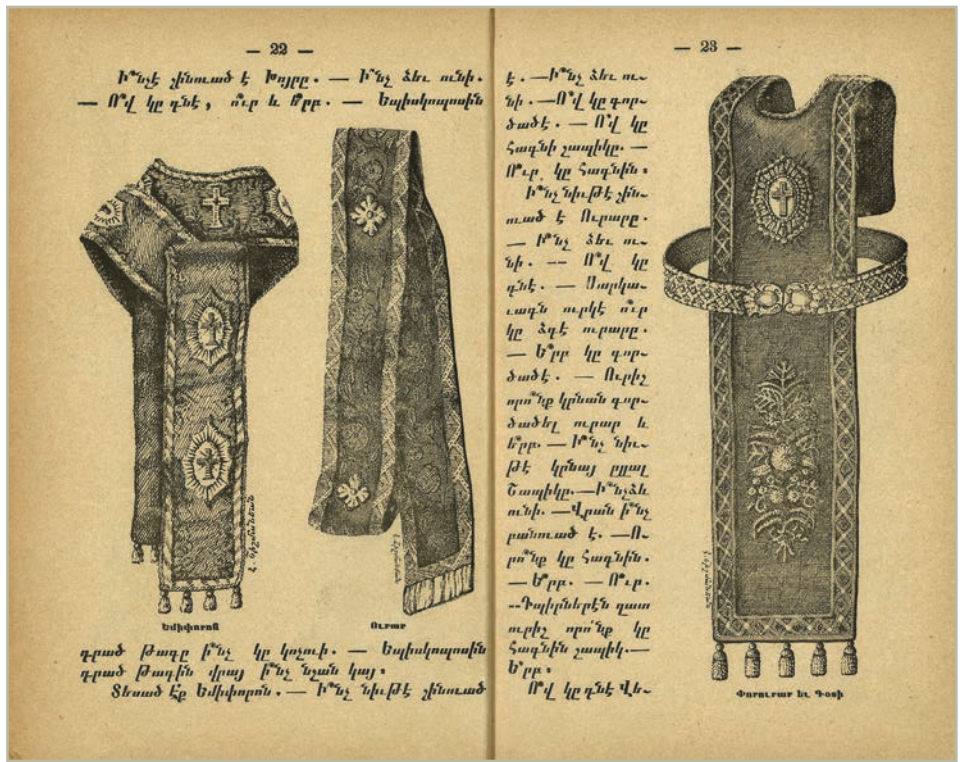 — 22 —
Ի՞նչէ շինուած է Խոյրը. — Ի՞նչ ձեւ ունի.
— Ո՞վ կը դնէ, ո՞ւր և ե՞րբ. — Եպիսկոպոսին
Եմիփորոն
Ուրար
դրած Թագը ի՞նչ կը կոչուի. — Եպիսկոպոսին
դրած Թագին վրայ ի՞նչ նշան կայ։
Տեսած էք Եմիփորոն. — Ի՞նչ նիւթէ շինուած
— 23 —
է. — Ի՞նչ ձեւ ու-
նի. — Ո՞վ կը գոր-
ծածէ. — Ո՞վ կը
հագնի շապիկը. —
Ո՞ւր կը հագնին։
Ի՞նչ նիւթէ շին-
ուած է Ուրարը.
— Ի՞նչ ձեւ ու-
նի. -- Ո՞վ կը
դնէ. — Սարկա-
ւագն ուրկէ ո՞ւր
կը ձգէ ուրարը.
— Ե՞րբ կը գոր-
ծածէ. — Ուրիշ
որո՞նք կրնան գոր-
ծածել ուրար և
ե՞րբ. — Ի՞նչ նիւ-
թէ կրնայ ըլլալ
Շապիկը.—Ի՞նչ ձև
ունի. —Վրան ի՞նչ
բանուած է. —Ո-
րո՞նք կը հագնին.
— Ե՞րբ. — Ո՞ւր.
--Դպիրներէն զատ
ուրիշ որո՞նք կը
հագնին շապիկ.—
Ե՞րբ։
Ո՞վ կը դնէ Վե-
Փորուրար եւ Գօտի